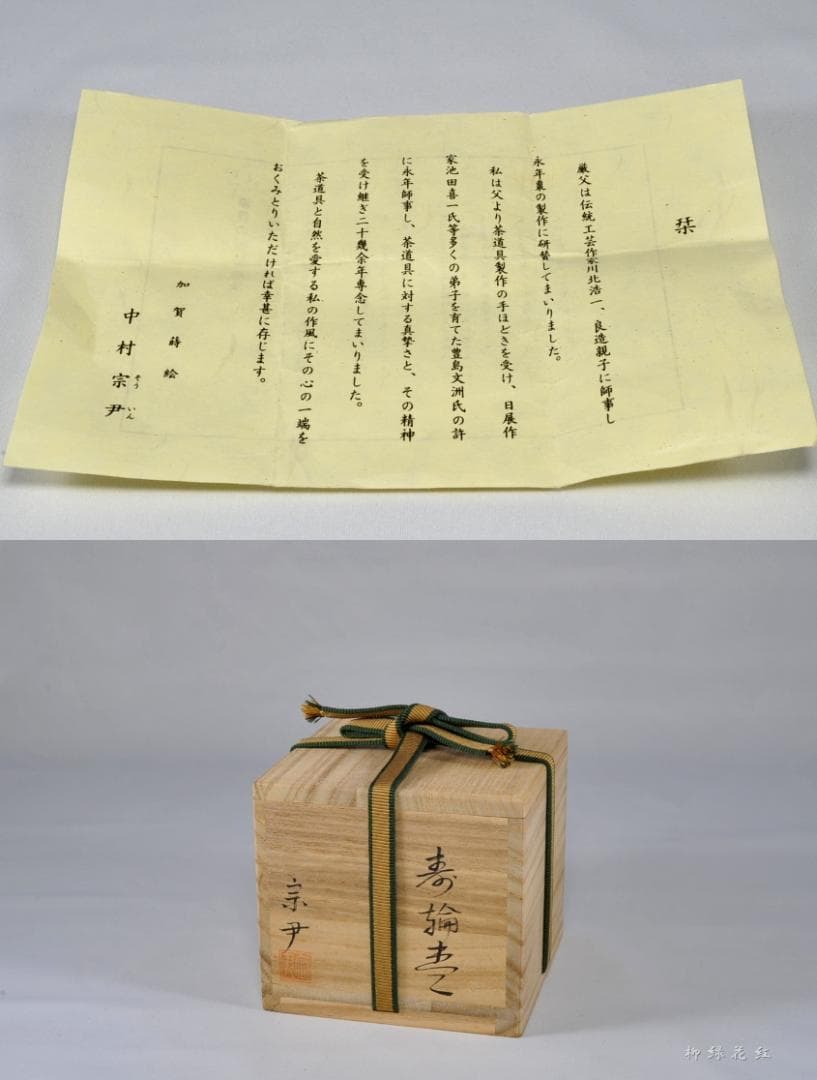 栞
厳父は伝統工芸作家川北浩一、良造親子に師事し
永年棗の製作に研督してまいりました。
私は父より茶道具製作の手ほどきを受け、日展作
家池田喜一氏等多くの弟子を育てた豊島文洲氏の許
に永年師事し、茶道具に対する真摯さと、その精神
を受け継ぎ二十幾余年専念してまいりました。
茶道具と自然を愛する私の作風にその心の一端を
おくみとりいただければ幸甚に存じます。
加賀蒔絵
中村宗尹
そういん
寿輪
宗尹
柳緑花紅